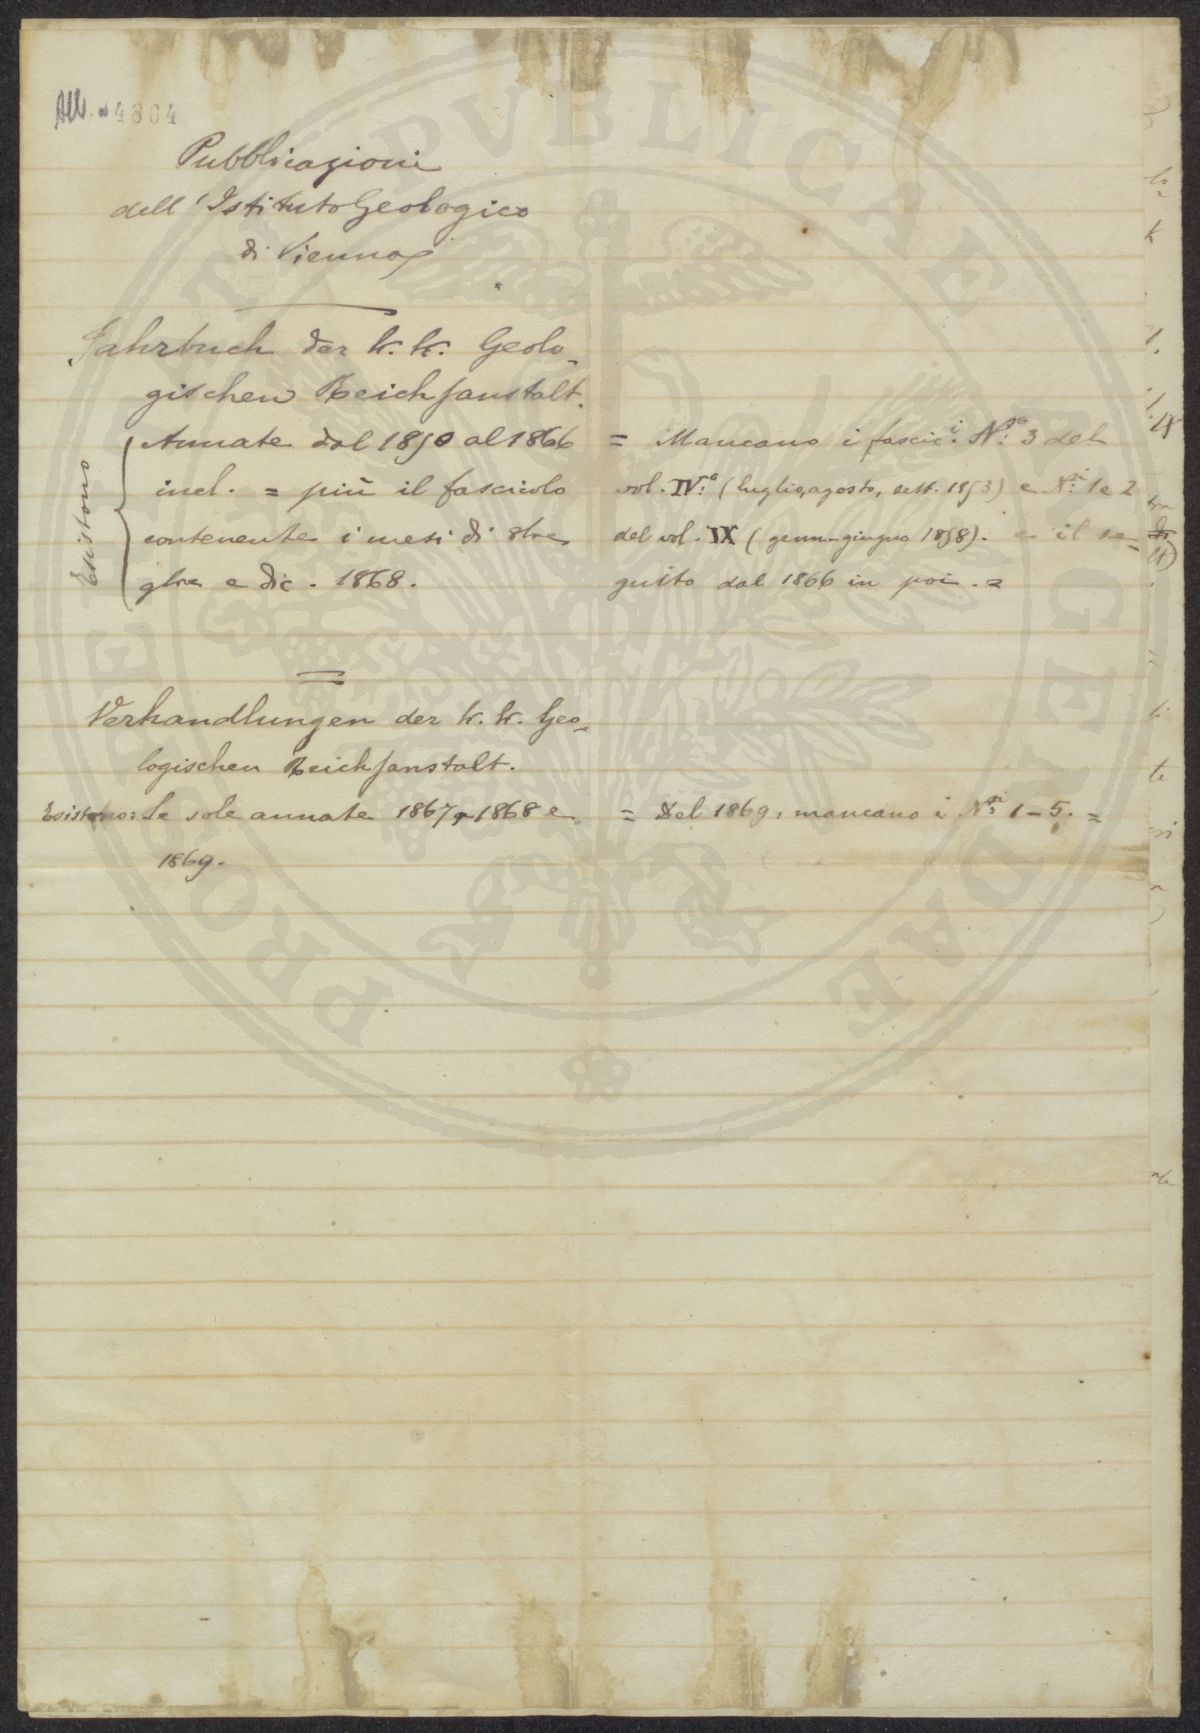 All. 4804
Pubblicazioni
dell'Istituto Geologico
di Vienna
Jahrbuch der k. k. Geolo=
gischen Reichsanstalt.
Esistono
Annate dal 1850 al 1866
incl. = più il fascicolo
contenente i mesi di 8bre
9bre e dic. 1868.
= Mancano i fascic.i N.o 3 del
vol. IV.o (luglio, agosto, sett. 1853) e N.ri 1 e 2
del vol. IX (genn.-giugno 1858). e il se=
guito dal 1866 in poi. =
Verhandlungen der k. k. Geo=
logischen Reichsanstalt.
Esistono: le sole annate 1867, 1868 e
1869.
= Del 1869, mancano i N.ri 1-5. =
PROBE ET PVBLICAE LEGENDAE